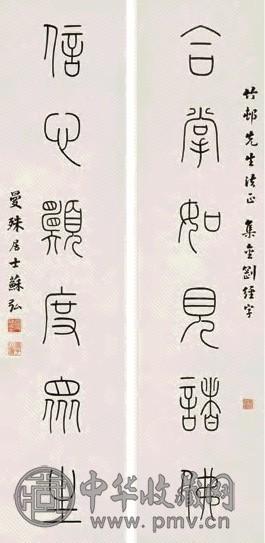 竹邨先生法正 集金剛經字
合掌如見諸佛
信心願度眾生
曼殊居士蘇弘
中华收藏网
www.pmv.cn